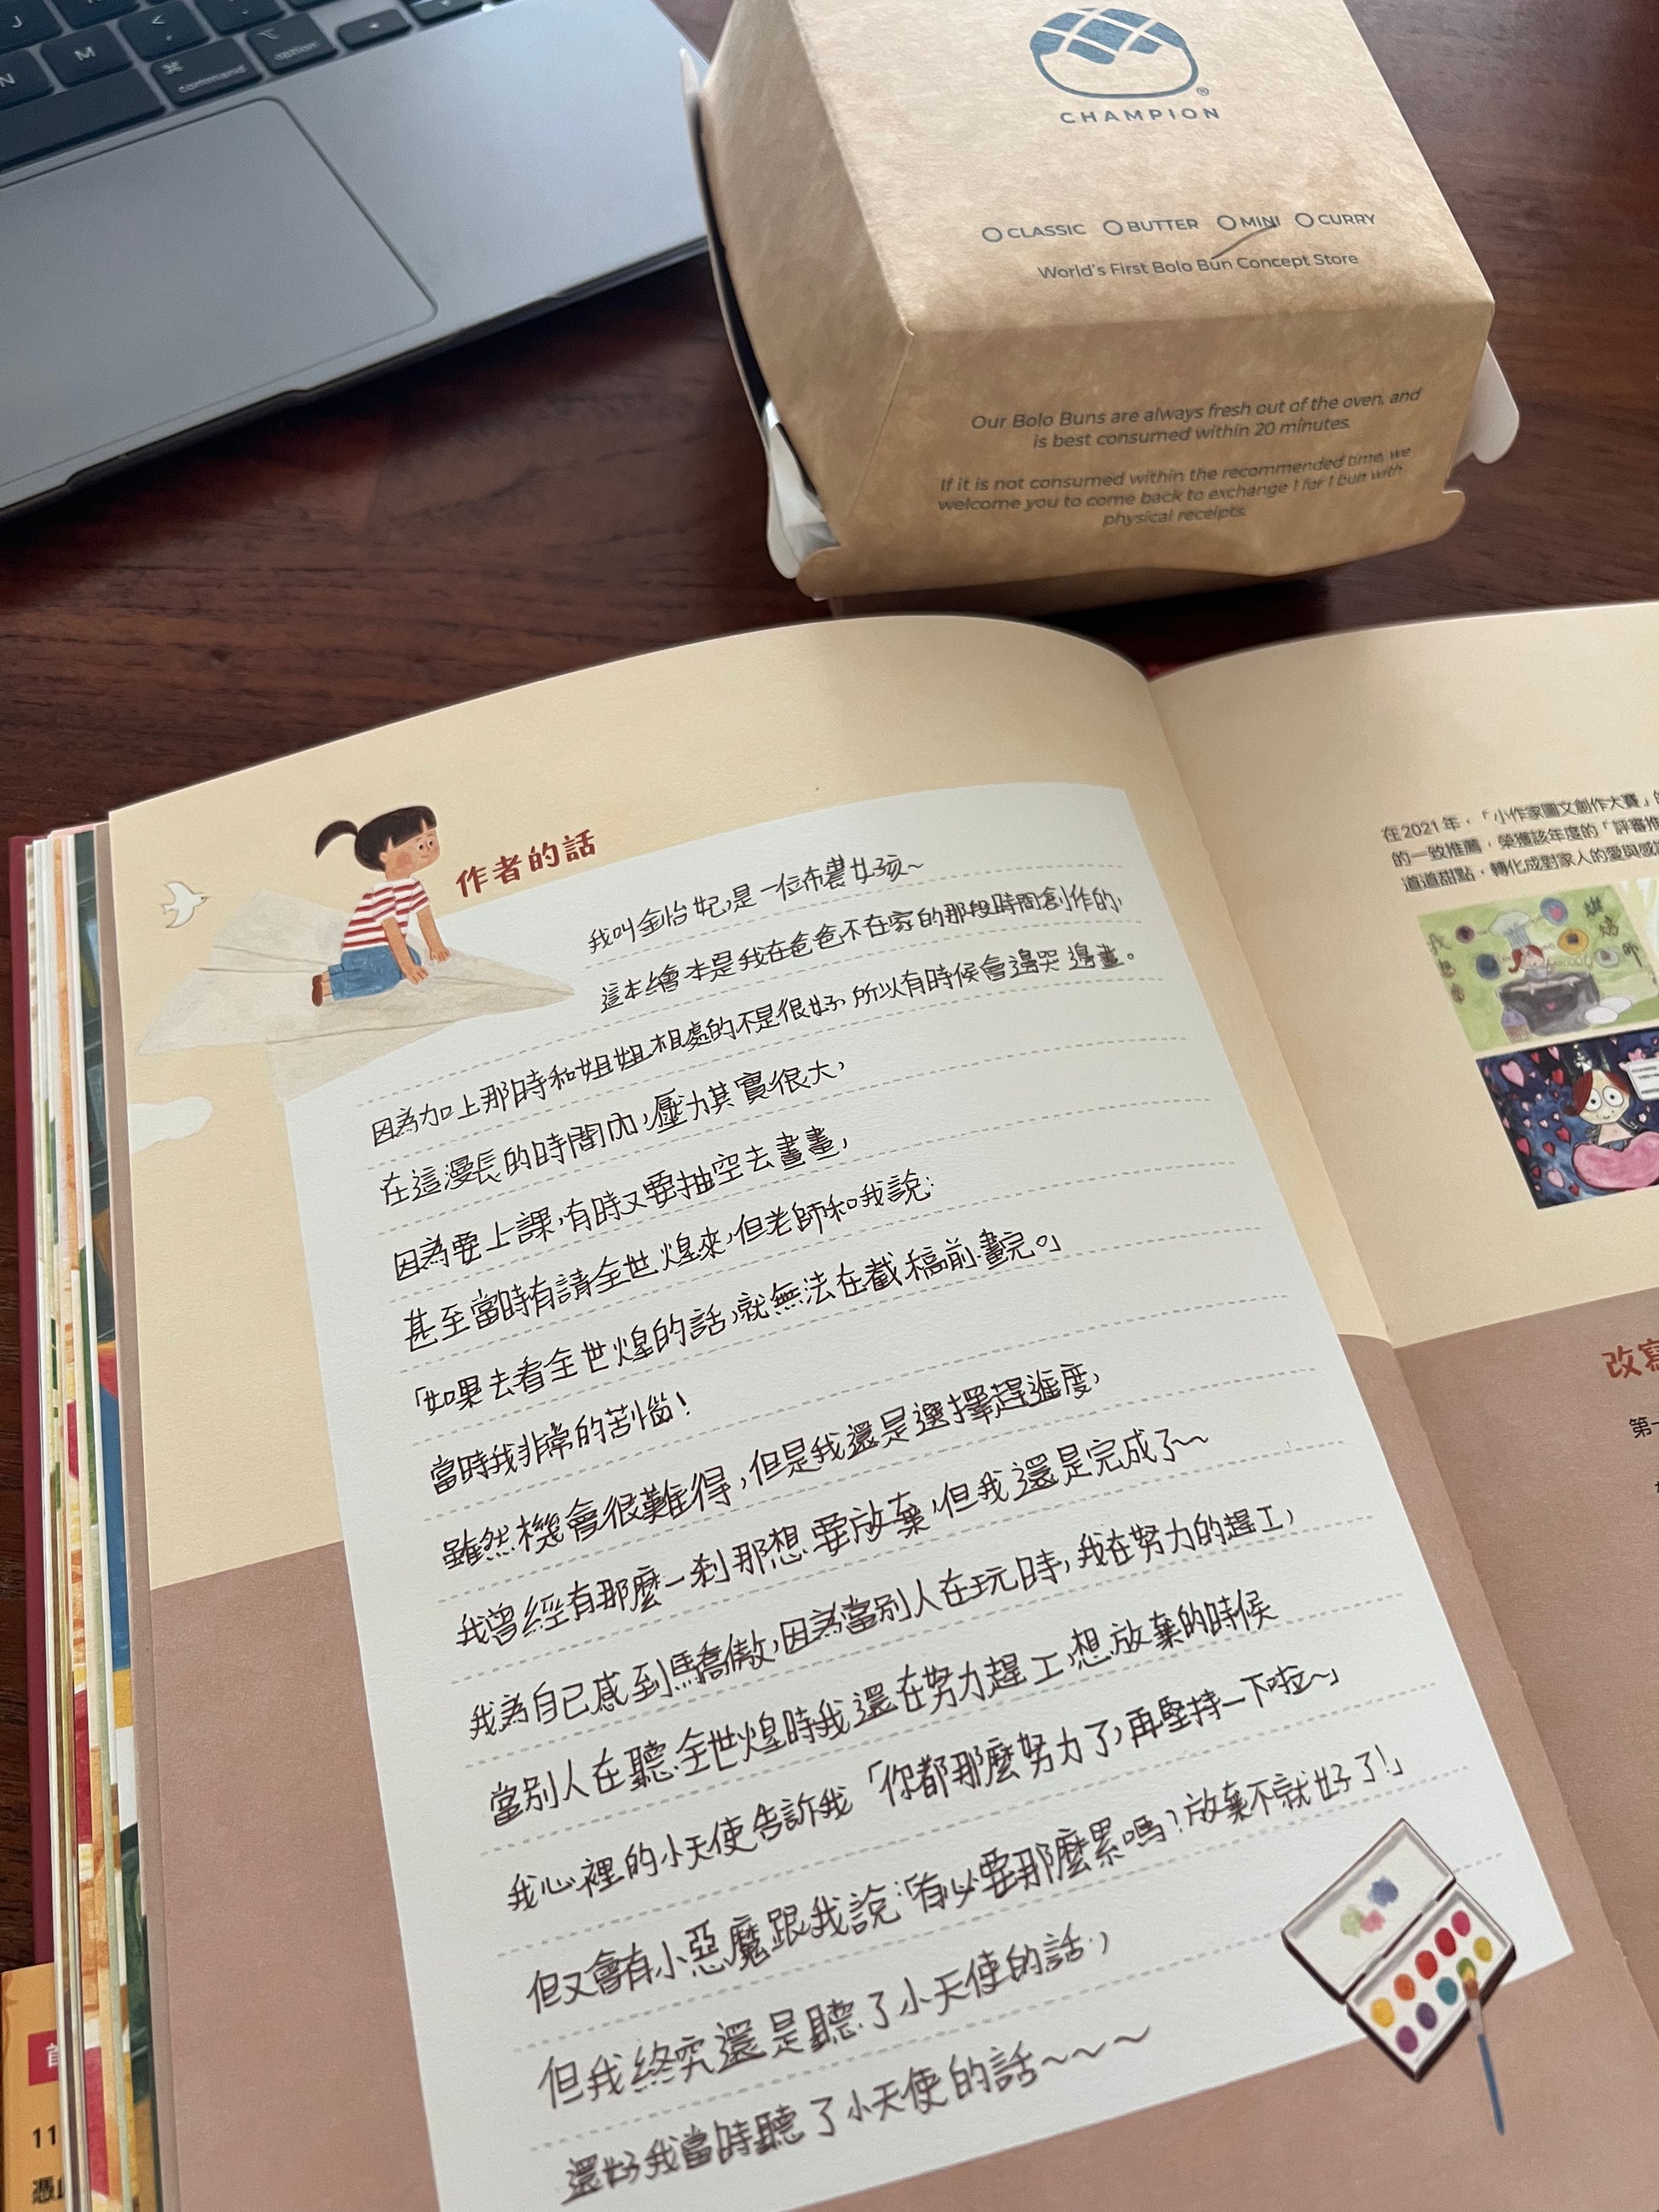 J
M
N
<
,
⌘
command
⌥
option
CHAMPION
®
CLASSIC BUTTER MINI CURRY
World's First Bolo Bun Concept Store
Our Bolo Buns are always fresh out of the oven, and
is best consumed within 20 minutes.
If it is not consumed within the recommended time, we
welcome you to come back to exchange 1 for 1 bun with
physical receipts.
作者的話
我叫金怡妃,是一位布農女孩~
這本繪本是我在爸爸不在家的那段時間創作的,
因為加上那時和姐姐相處的不是很好,所以有時候會邊哭邊畫。
在這漫長的時間內,壓力其實很大,
因為要上課,有時又要抽空去畫畫,
甚至當時有請全世煌來,但老師和我說:
「如果去看全世煌的話,就無法在截稿前畫完。」
當時我非常的苦惱!
雖然機會很難得,但是我還是選擇趕進度,
我曾經有那麼一刹那想要放棄,但我還是完成了~
我為自己感到驕傲,因為當別人在玩時,我在努力的趕工,
當別人在聽全世煌時我還在努力趕工,想放棄的時候
我心裡的小天使告訴我「你都那麼努力了,再堅持一下啦~」
但又會有小惡魔跟我說:「有必要那麼累嗎?放棄不就好了!」
但我終究還是聽了小天使的話,
還好我當時聽了小天使的話~~~
在2021年,「小作家圖文創作大賽」的
的一致推薦,榮獲該年度的「評審推
道道甜點,轉化成對家人的愛與感
改寫
第一
11